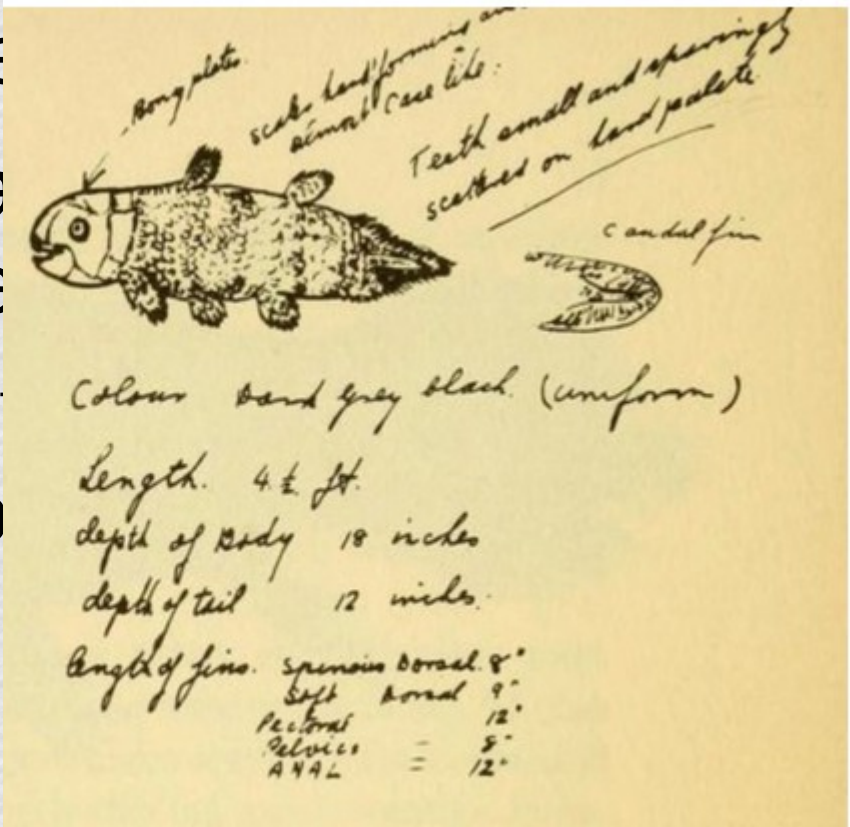 Bony plates.
scales hard forming an
almost case like:
Teeth small and sparingly
scattered on hard palate
Caudal fin
Colour Dark grey black. (uniform)
Length. 4 ½ ft.
depth of Body 18 inches
depth of tail 12 inches.
length of fins. Spinous Dorsal. 8"
Soft Dorsal 9"
Pectoral 12"
Pelvics = 8"
ANAL = 12"